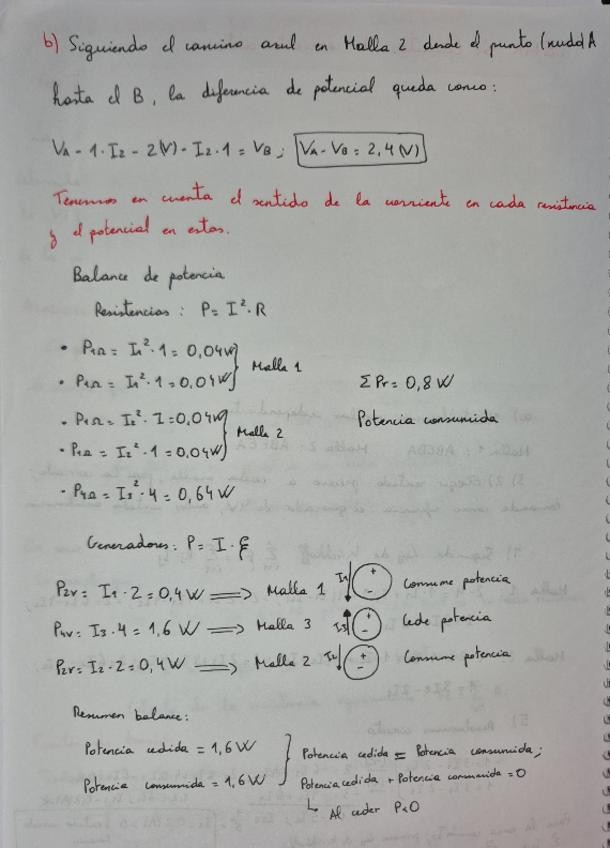 b) Siguiendo el camino azul en Malla 2 desde el punto (nudo) A
hasta el B, la diferencia de potencial queda como:
VA - 1·I2 - 2(V) - I2·1 = VB; VA - VB = 2,4(V)
Tenemos en cuenta el sentido de la corriente en cada resistencia
y el potencial en estas.
Balance de potencia
Resistencias: P = I²·R
• P1Ω = I1²·1 = 0,04W
Malla 1
• P1Ω = I1²·1 = 0,04W
ΣPr = 0,8 W
• P1Ω = I2²·1 = 0,04W
Malla 2
Potencia consumida
• P1Ω = I2²·1 = 0,04W
• P4Ω = I3²·4 = 0,64 W
Generadores: P = I·ξ
P2V = I1·2 = 0,4 W ⟹ Malla 1 I1↓ + - Consume potencia
P4V = I3·4 = 1,6 W ⟹ Malla 3 I3↑ + - Cede potencia
P2V = I2·2 = 0,4 W ⟹ Malla 2 I2↓ + - Consume potencia
Resumen balance:
Potencia cedida = 1,6 W
Potencia cedida = Potencia consumida;
Potencia consumida = 1,6 W
Potencia cedida + Potencia consumida = 0
↳ Al ceder P<0